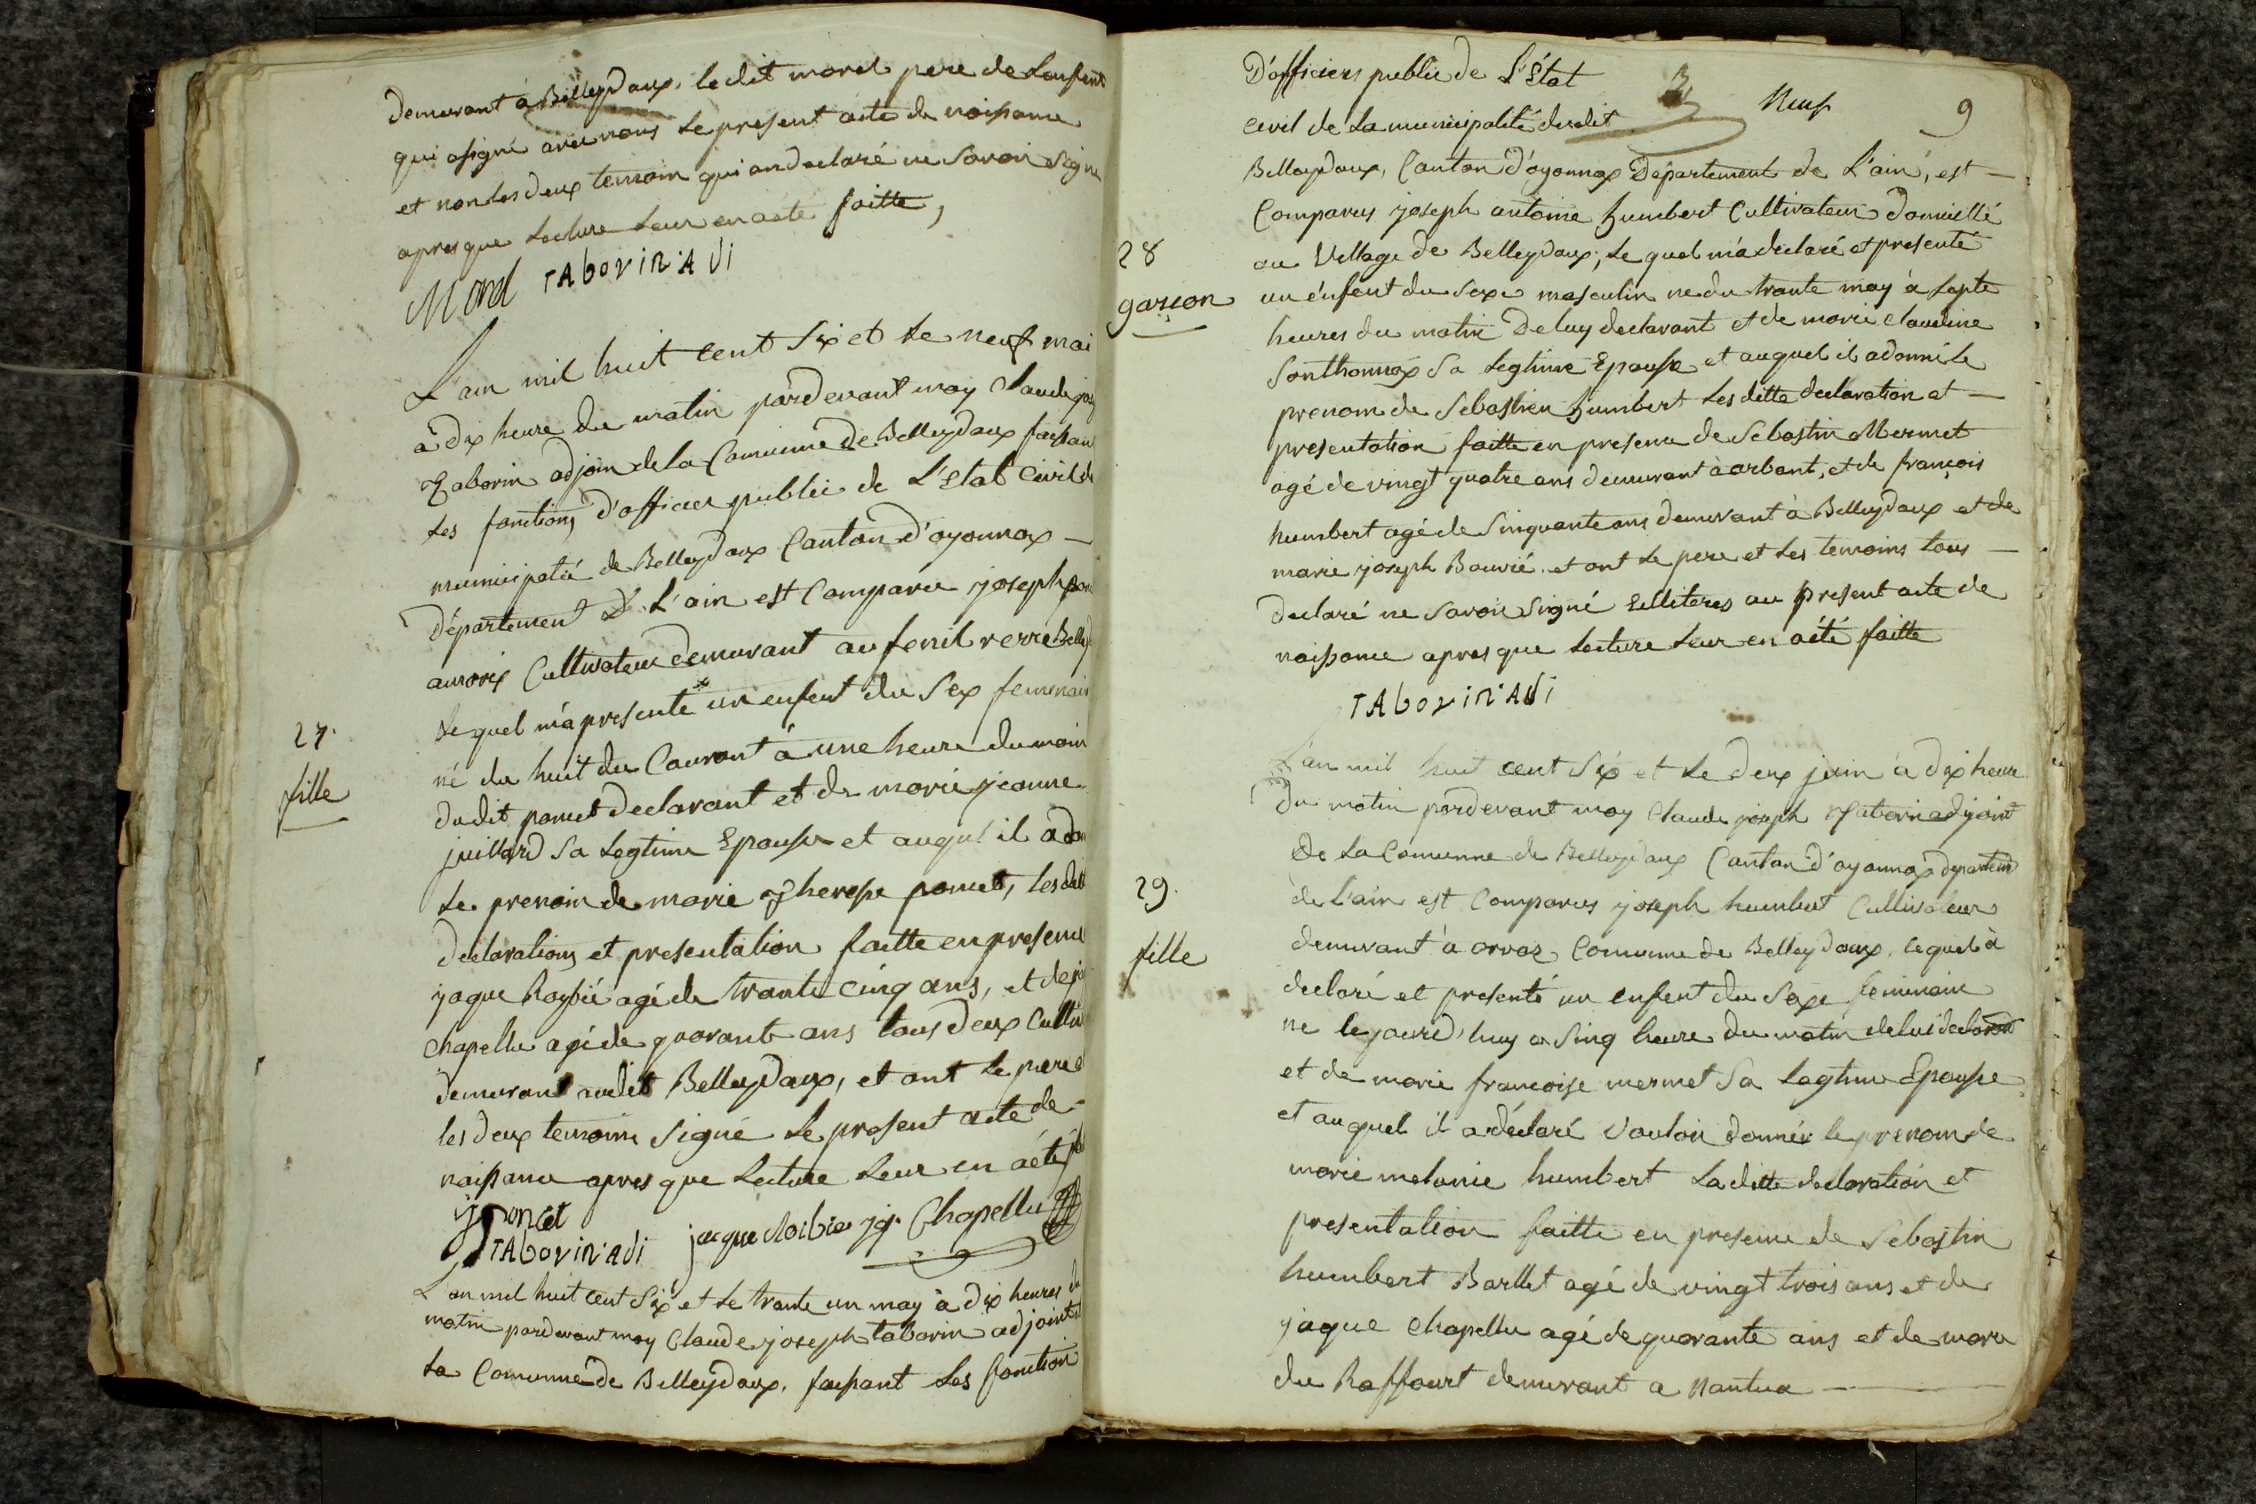 demeurant à Belleydoux, le dit morel pere de Lenfent
qui asigné avec nous le present acte de naissance
et non les deux temoin qui on declaré ne savoir signe
apres que Lecture leur en aete faitte,
Morel TABOVIN·ADI
L'an mil huit cent Six et le neuf mai
à dix heure du matin pardevant moy Claude jose
Taborin adjoin de la Comunne de Belleydoux faisan
les fonctions d'officier public de L'etat Civil de
municipatié de Belleydoux Canton d'oyonnax —
Département de L'ain est Comparu joseph pon
Cultivateur demurant au fenil verre Belleyd
27.
fille
Le quel m'a presenté * un enfent du Sex femenain
né du huit du Courant à une heure du main
dudit poncet declarant et de marie jeanne
juillard Sa Legtime Epouse et auqul il a don
Le prenom de marie Therese poncet, les ditt
declarations et presentation faitte en presence
jaque Roybié agé de trante cinq ans, et de
Chapellu agé de quarante ans tous deux Cultiv
demurant audit Belleydoux, et ont le pere et
les deux temoins Signé le present acte de
naissance apres que Lecture Leur en aété
j poncet
TABOVIN·ADI jacque Roibier jq. Chapellu
L'an mil huit cent Six et le trante un may à dix heures du
matin pardevant moy Claude joseph taborin adjoint
La Comunne de Belleydoux, faisant Les fonction
D'officiers public de L'État
Neuf 9
civil de La municipalité dudit
Belleydoux, Canton d'oyonnax Département de L'ain, est —
Comparus joseph antoine humbert Cultivateur domicillé
28
garçon
au Village de Belleydoux, Le quel m'a declaré et presenté
un énfent du Sexe masculin ne du trante may à Septe
heures du matin De luy declarant et de marie claudine
Sonthonnax Sa Legtime Epouse et auquel il a donné le
prenom de Sebastien humbert Les ditte declaration et —
presentation faitte en presence de Sebastin Mermet
agé de vingt quatre ans demurant à arbant, et de françois
humbert agé de Sinquante ans demurant à Belleydoux et de
marie joseph Bouvié. et ont Le pere et Les temoins tous —
declaré ne Savoir Signé au present acte de
naissance apres que Lecture Leur en aété faitte
TABOVIN·ADI
L'an mil huit cent Six et Le deux juin à dix heure
du matin pardevant moy Claude joseph Taborin adjoint
De La Comunne de Belleydoux Canton d'oyonnax departem
29.
fille
de L'ain est Comparus joseph humbert Cultivateur
demurant à orvaz Comunne de Belleydoux, lequel à
declaré et presenté un enfent du Sexe feminain
ne le jourd'huy a Sinq heure du matin de lui declarant
et de marie françoise mermet Sa Legtime Epouse
et auquel il a déclaré Vouloir donnér le prenom de
marie melanie humbert La ditte declaration et
presentation faitte en presence de Sebastin
humbert Barllet agé de vingt trois ans et de
jaque Chapellu agé de quarante ans et de marie
du Raffourt demurant a Nantua —